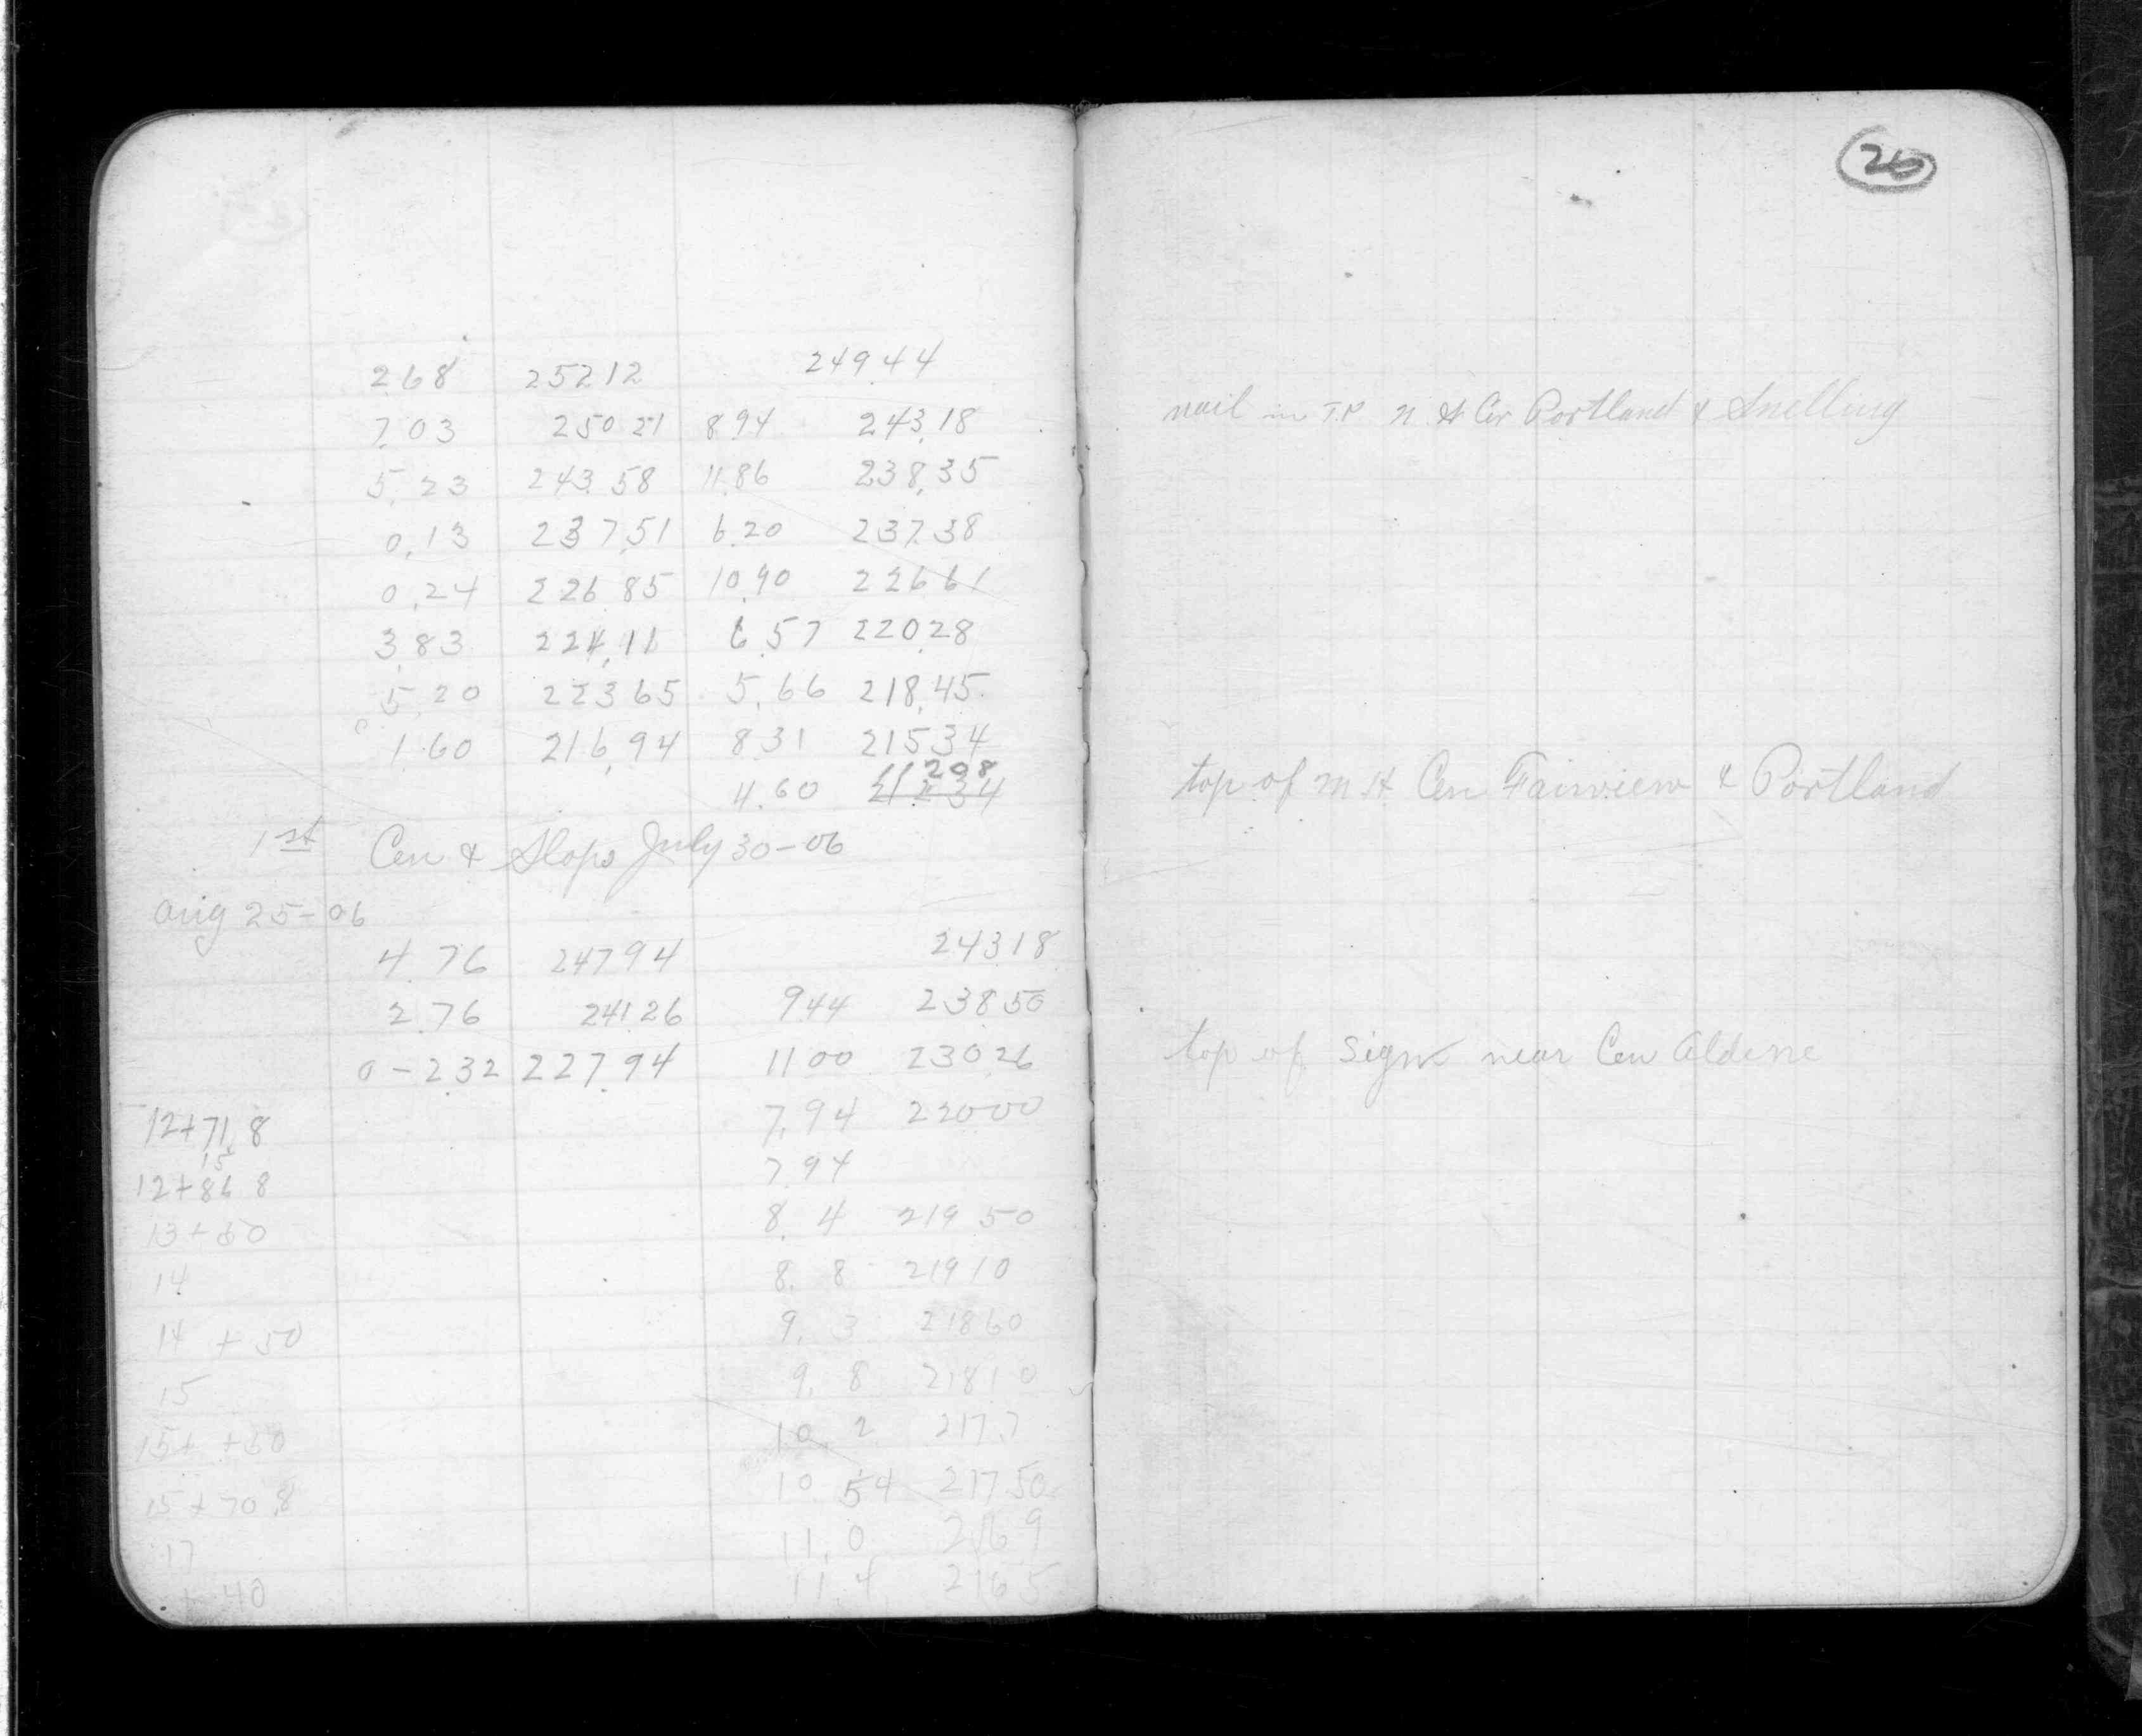 26
2.68 252.12 249.44
7.03 250.21 8.94 243.18
nail in T.P. N
Cor Portland & Snelling
5.23 243.58 11.86 238.35
0.13 237.51 6.20 237.38
0.24 226.85 10.90 226.61
3.83 224.11 6.57 220.28
5.20 223.65 5.66 218.45
1.60 216.94 8.31 215.34
208
4.60 212.34
top of M H Cen Fairview & Portland
1st Cen & Slope July 30-06
Aug 25-06
4.76 247.94 243.18
2.76 241.26 9.44 238.50
0-2.32 227.94 11.00 230.26
top of Sign near Cen Aldine
12+71.8 7.94 220.00
15
12+86.8 7.94
13+50 8.4 219.50
14 8.8 219.10
14 +50 9.3 218.60
15 9.8 218.10
15+ +50 10.2 217.7
15+70.8 10.54 217.50
17 11.0 216.9
+40 11.4 216.5